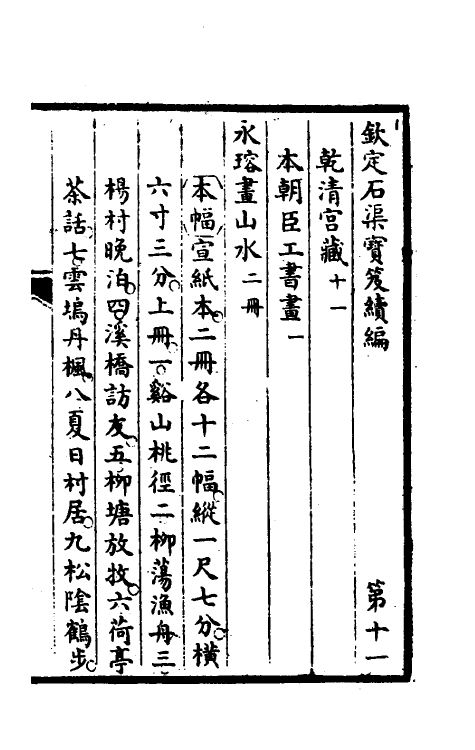 欽定石渠寶笈續編　第十一
乾清宮藏十一
本朝臣工書畫一
永瑢畫山水二冊
本幅宣紙本二冊各十二幅縱一尺七分橫
六寸三分上冊一谿山桃徑二柳蕩漁舟三
楊村晚泊四溪橋訪友五柳塘放牧六荷亭
茶話七雲塢丹楓八夏日村居九松陰鶴步